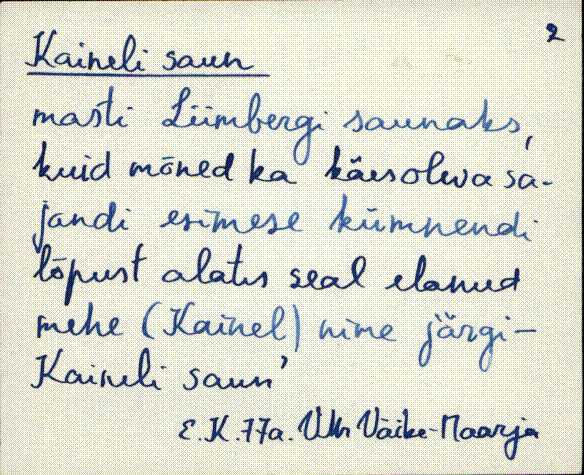 2
Kaineli saun
masti Liimbergi saunaks,
kuid mõned ka käesoleva sa-
jandi esimese kümnendi
lõpust alates seal elanud
mehe (Kainel) nime järgi-
Kaineli saun'
E.K. 77a. VMr Väike-Maarja